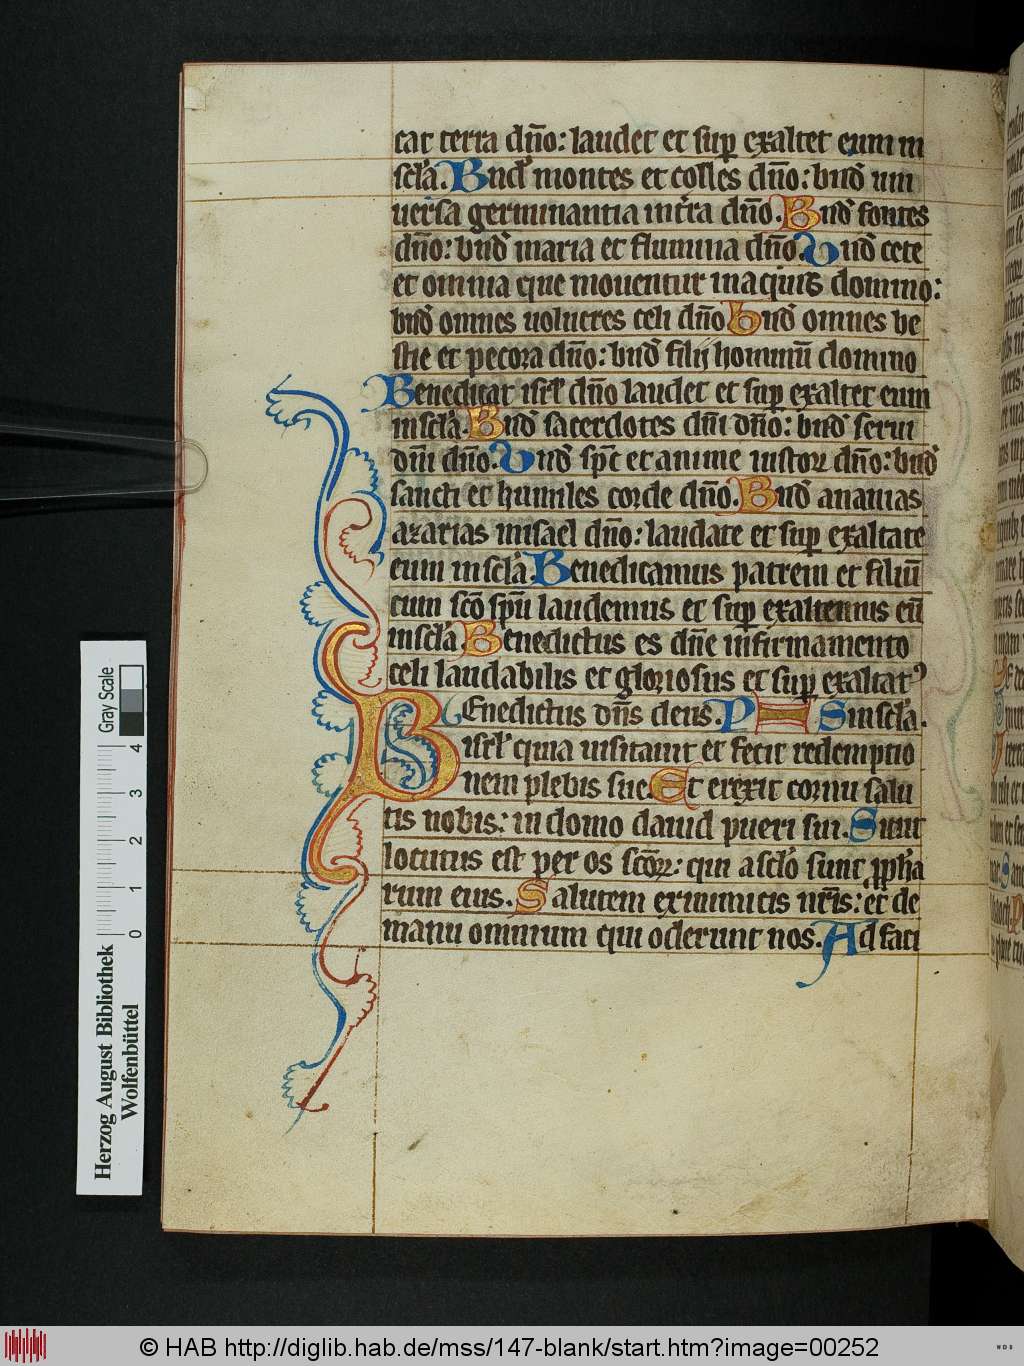 cat terra dño: laudet et sup exaltet eum in
scl'a. Bnd' montes et colles dño: bnd' uni
uersa germinantia int'ra dño. Bnd' fontes
dño: bnd' maria et flumina dño. Bnd' cete
et omnia que mouentur inaquis domino:
bnd' omnes uolucres celi dño Bnd' omnes be
stie et pecora dño: bnd' filij hominū domino
Benedicat isrl' dño laudet et sup exaltet eum
inscl'a. Bnd' sacerdotes dñi dño: bnd' serui
dñi dño. Bnd' spc̄ et anime iustoꝝ dño: bnd'
sancti et humiles corde dño. Bnd' ananias
azarias misael dño: laudate et sup exaltate
eum inscl'a. Benedicamus patrem et filiū
cum scō spū laudemus et sup exaltemus eū
inscl'a. Benedictus es dñe infirmamento
celi laudabilis et gloriosus et sup exaltat9
inscl'a. PS
BEnedictus dñs deus
isrl' quia uisitauit et fecit redemptio
nem plebis sue. Et erexit cornu salu
tis nobis: in domo dauid pueri sui. Sicut
locutus est per os scōꝝ: qui ascl'o sunt ppħa
rum eius. Salutem exinimicis nr̄is: et de
manu omnium qui oderunt nos. Ad faci
Gray Scale
4
3
2
1
0
Herzog August Bibliothek
Wolfenbüttel
© HAB http://diglib.hab.de/mss/147-blank/start.htm?image=00252